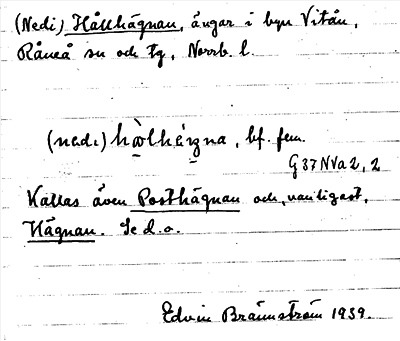 (Nedi) Hållhägnan, ängar i byn Vitån,
Råneå sn och tg, Norrb. l.
(nedi) hɑ̀lhézna, bf. fem.
G 37 NVa 2, 2
Kallas även Posthägnan och, vanligast,
Hägnan. Se d. o.
Edvin Brännström 1939.